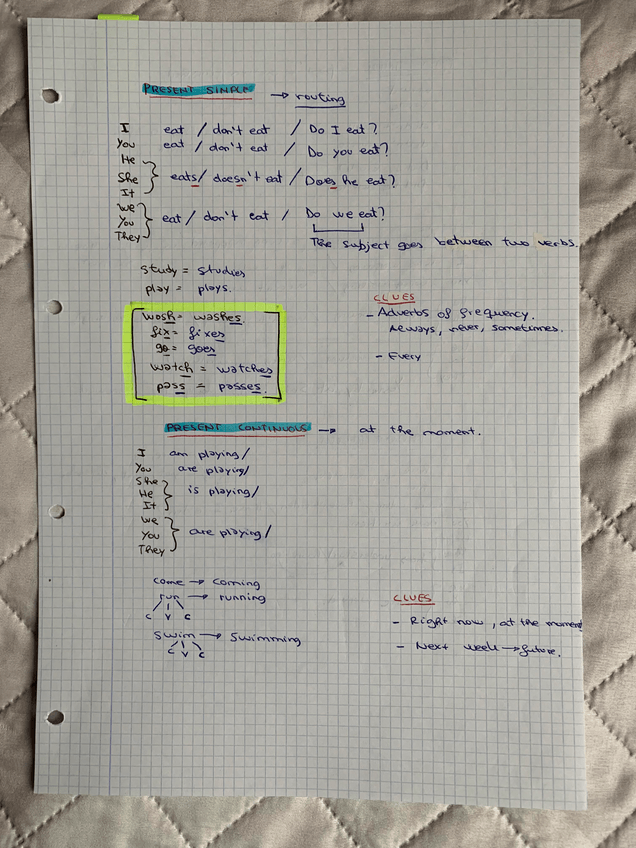 PRESENT SIMPLE → routing
I eat / don't eat / Do I eat?
You eat / don't eat / Do you eat?
He
She } eats / doesn't eat / Does he eat?
It
We
You } eat / don't eat / Do we eat?
They
The subject goes between two verbs.
study = studies
play = plays.
wash = washes.
fix = fixes
go = goes
watch = watches
pass = passes.
CLUES
- Adverbs of frequency.
Always, never, sometimes.
- Every
PRESENT CONTINUOUS → at the moment.
I am playing/
You are playing/
She
He } is playing/
It
We
You } are playing/
They
come → coming
run → running
C V C
swim → swimming
C V C
CLUES
- Right now, at the moment
- Next week → future.